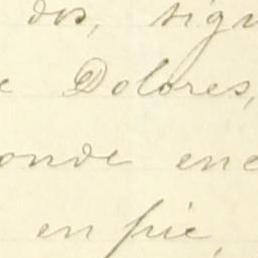 dos, sigu
e Dolores,
onde enc
en pie,